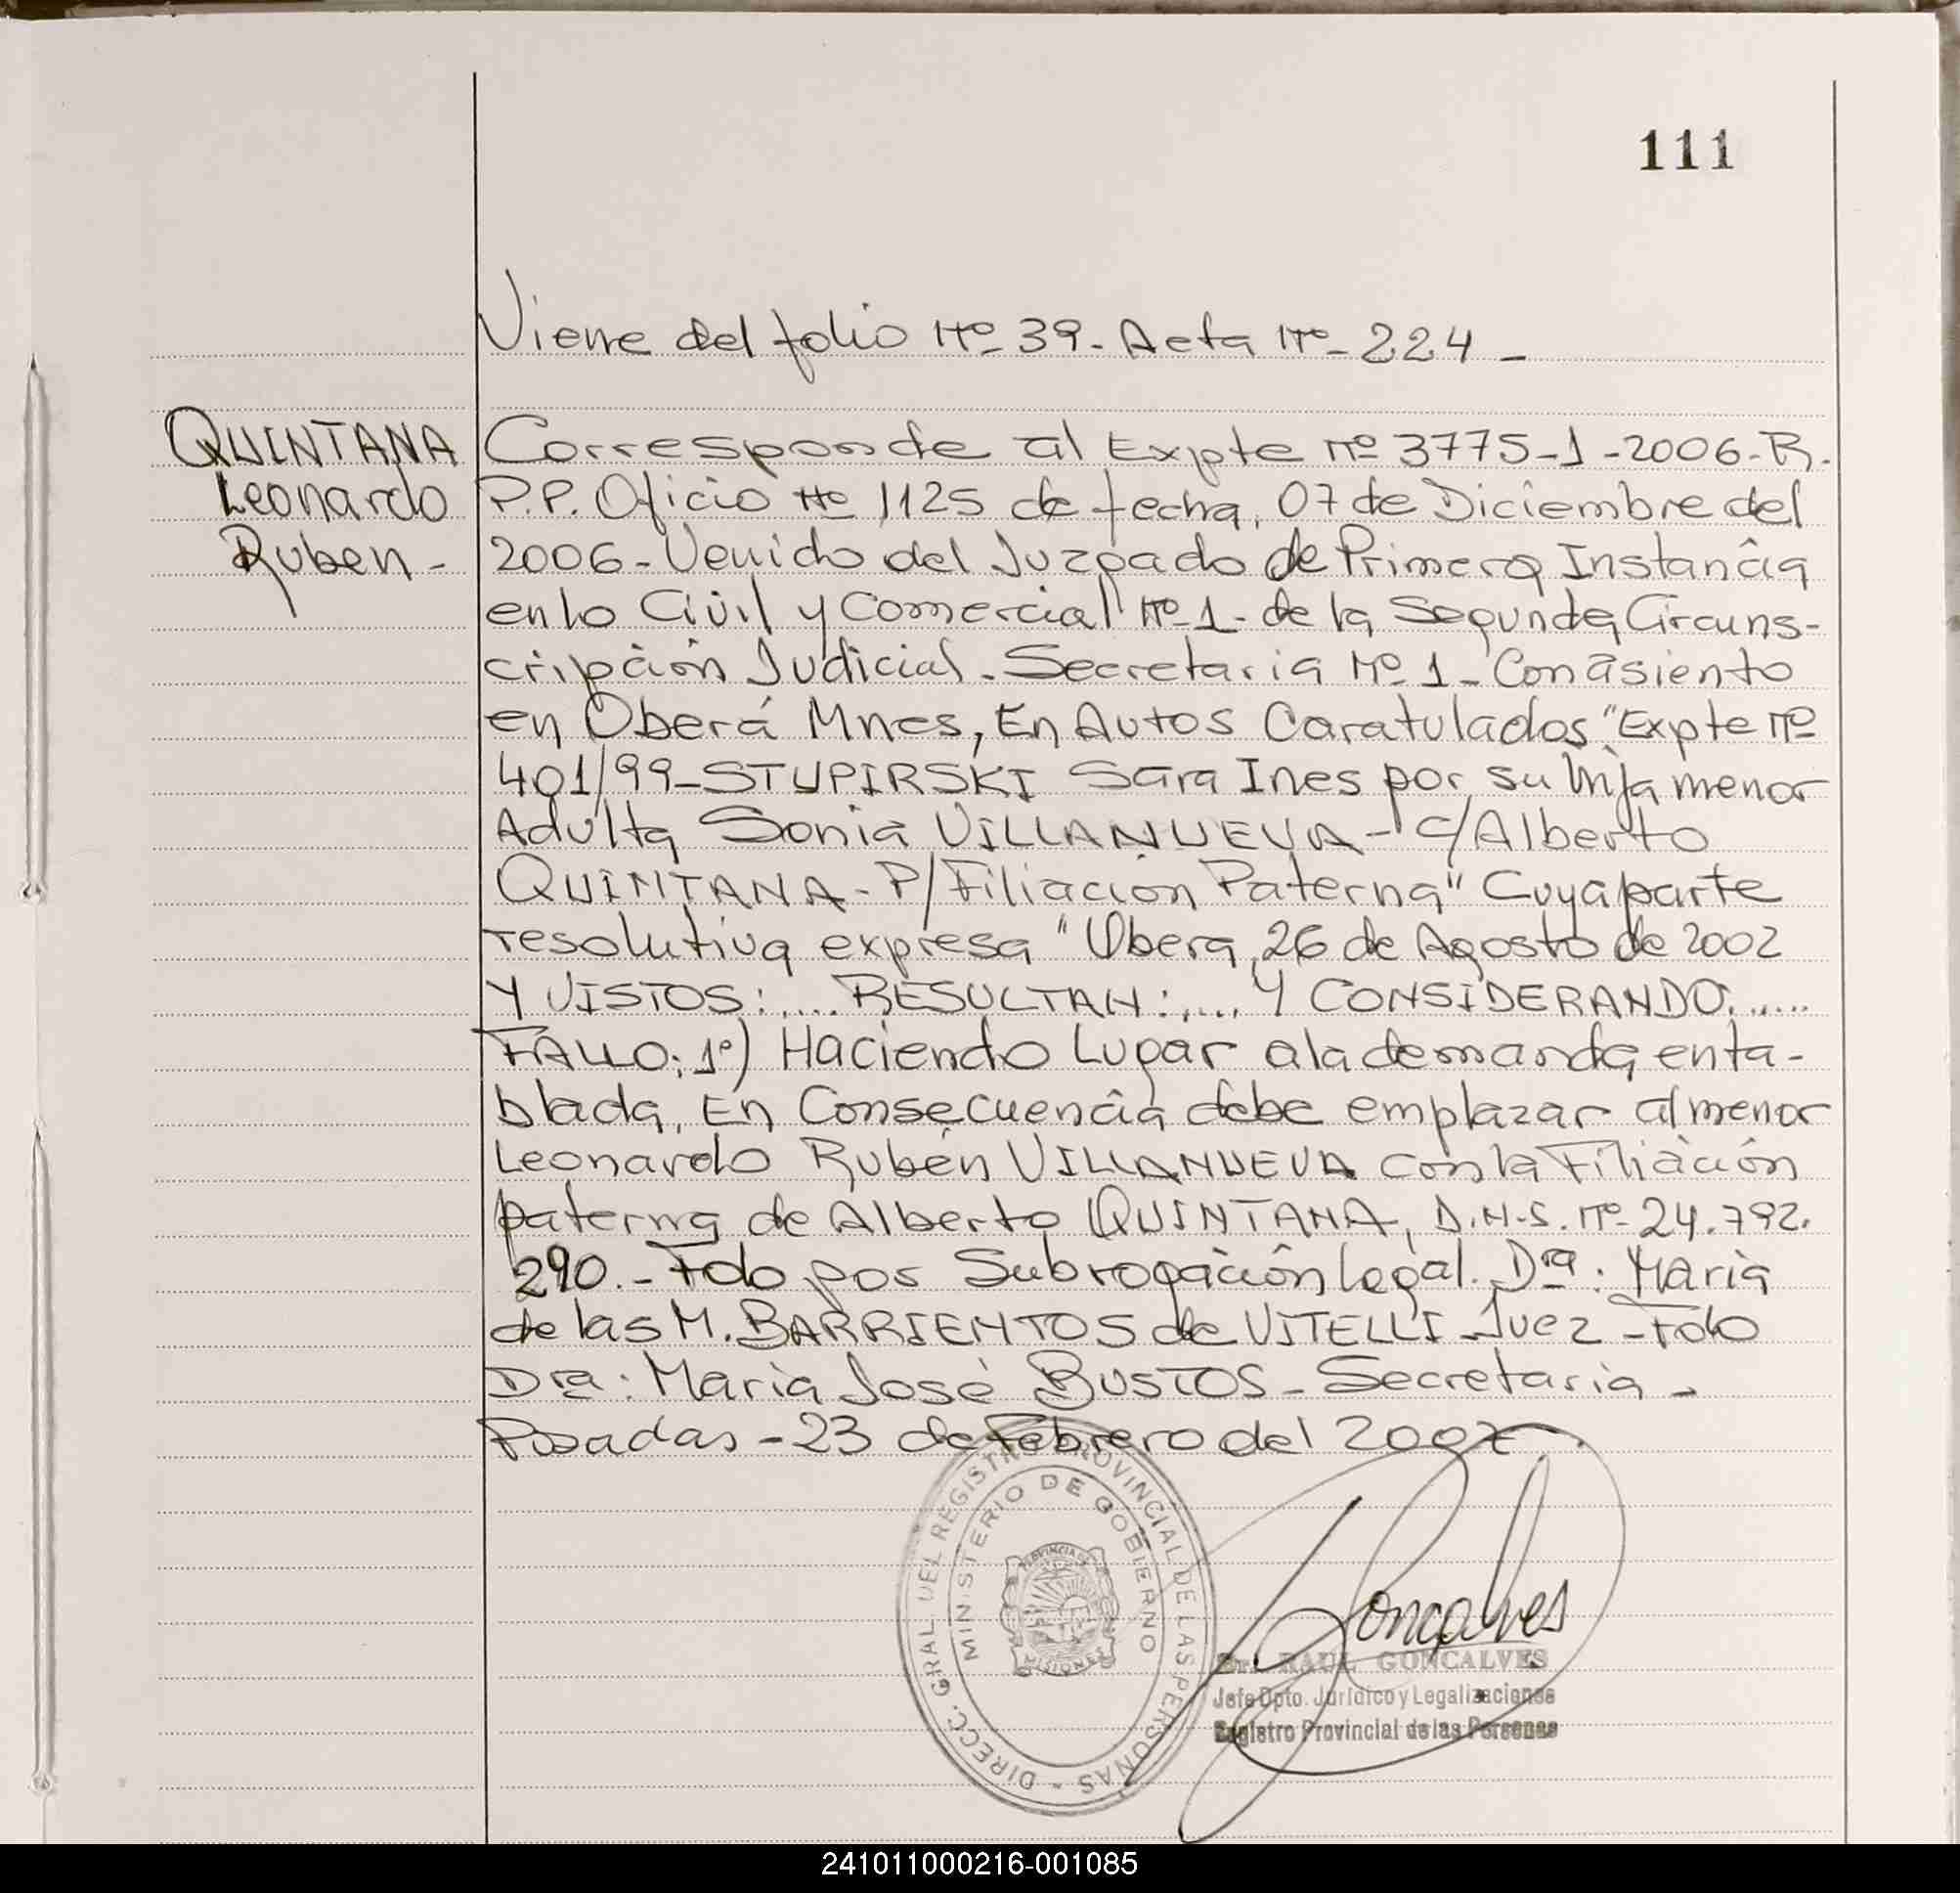 111
Viene del folio Nº 39. Acta Nº 224 -
QUINTANA
Leonardo
Ruben -
Corresponde al Expte Nº 3775-1-2006-R.
P.P. Oficio Nº 1125 de fecha, 07 de Diciembre del
2006 - Venido del Juzgado de Primera Instancia
en lo Civil y Comercial Nº 1 - de la Segunda Circuns-
cripción Judicial - Secretaria Nº 1 - Con asiento
en Oberá Mnes, En Autos Caratulados "Expte Nº
401/99 - STUPIRSKI Sara Ines por su hija menor
Adulta Sonia VILLANUEVA - c/Alberto
QUINTANA - P/Filiación Paterna" Cuya parte
resolutiva expresa "Obera, 26 de Agosto de 2002
Y VISTOS:.... RESULTAN:.... Y CONSIDERANDO:.....
FALLO: 1º) Haciendo Lugar a la demanda enta-
blada, En Consecuencia debe emplazar al menor
Leonardo Rubén VILLANUEVA con la Filiación
paterna de Alberto QUINTANA, D.N.I. Nº 24.792.
290. - Fdo por Subrogación legal. Dra: Maria
de las M. BARRIENTOS de VITELLI - Juez - Fdo
Dra: Maria José BUSTOS - Secretaria -
Posadas - 23 de Febrero del 2007 -
DIRECC. GRAL. DEL REGISTRO PROVINCIAL DE LAS PERSONAS -
MINISTERIO DE GOBIERNO
PROVINCIA DE
MISIONES
Goncalves
Dr. RAUL GONCALVES
Jefe Dpto. Jurídico y Legalizaciones
Registro Provincial de las Personas
241011000216-001085